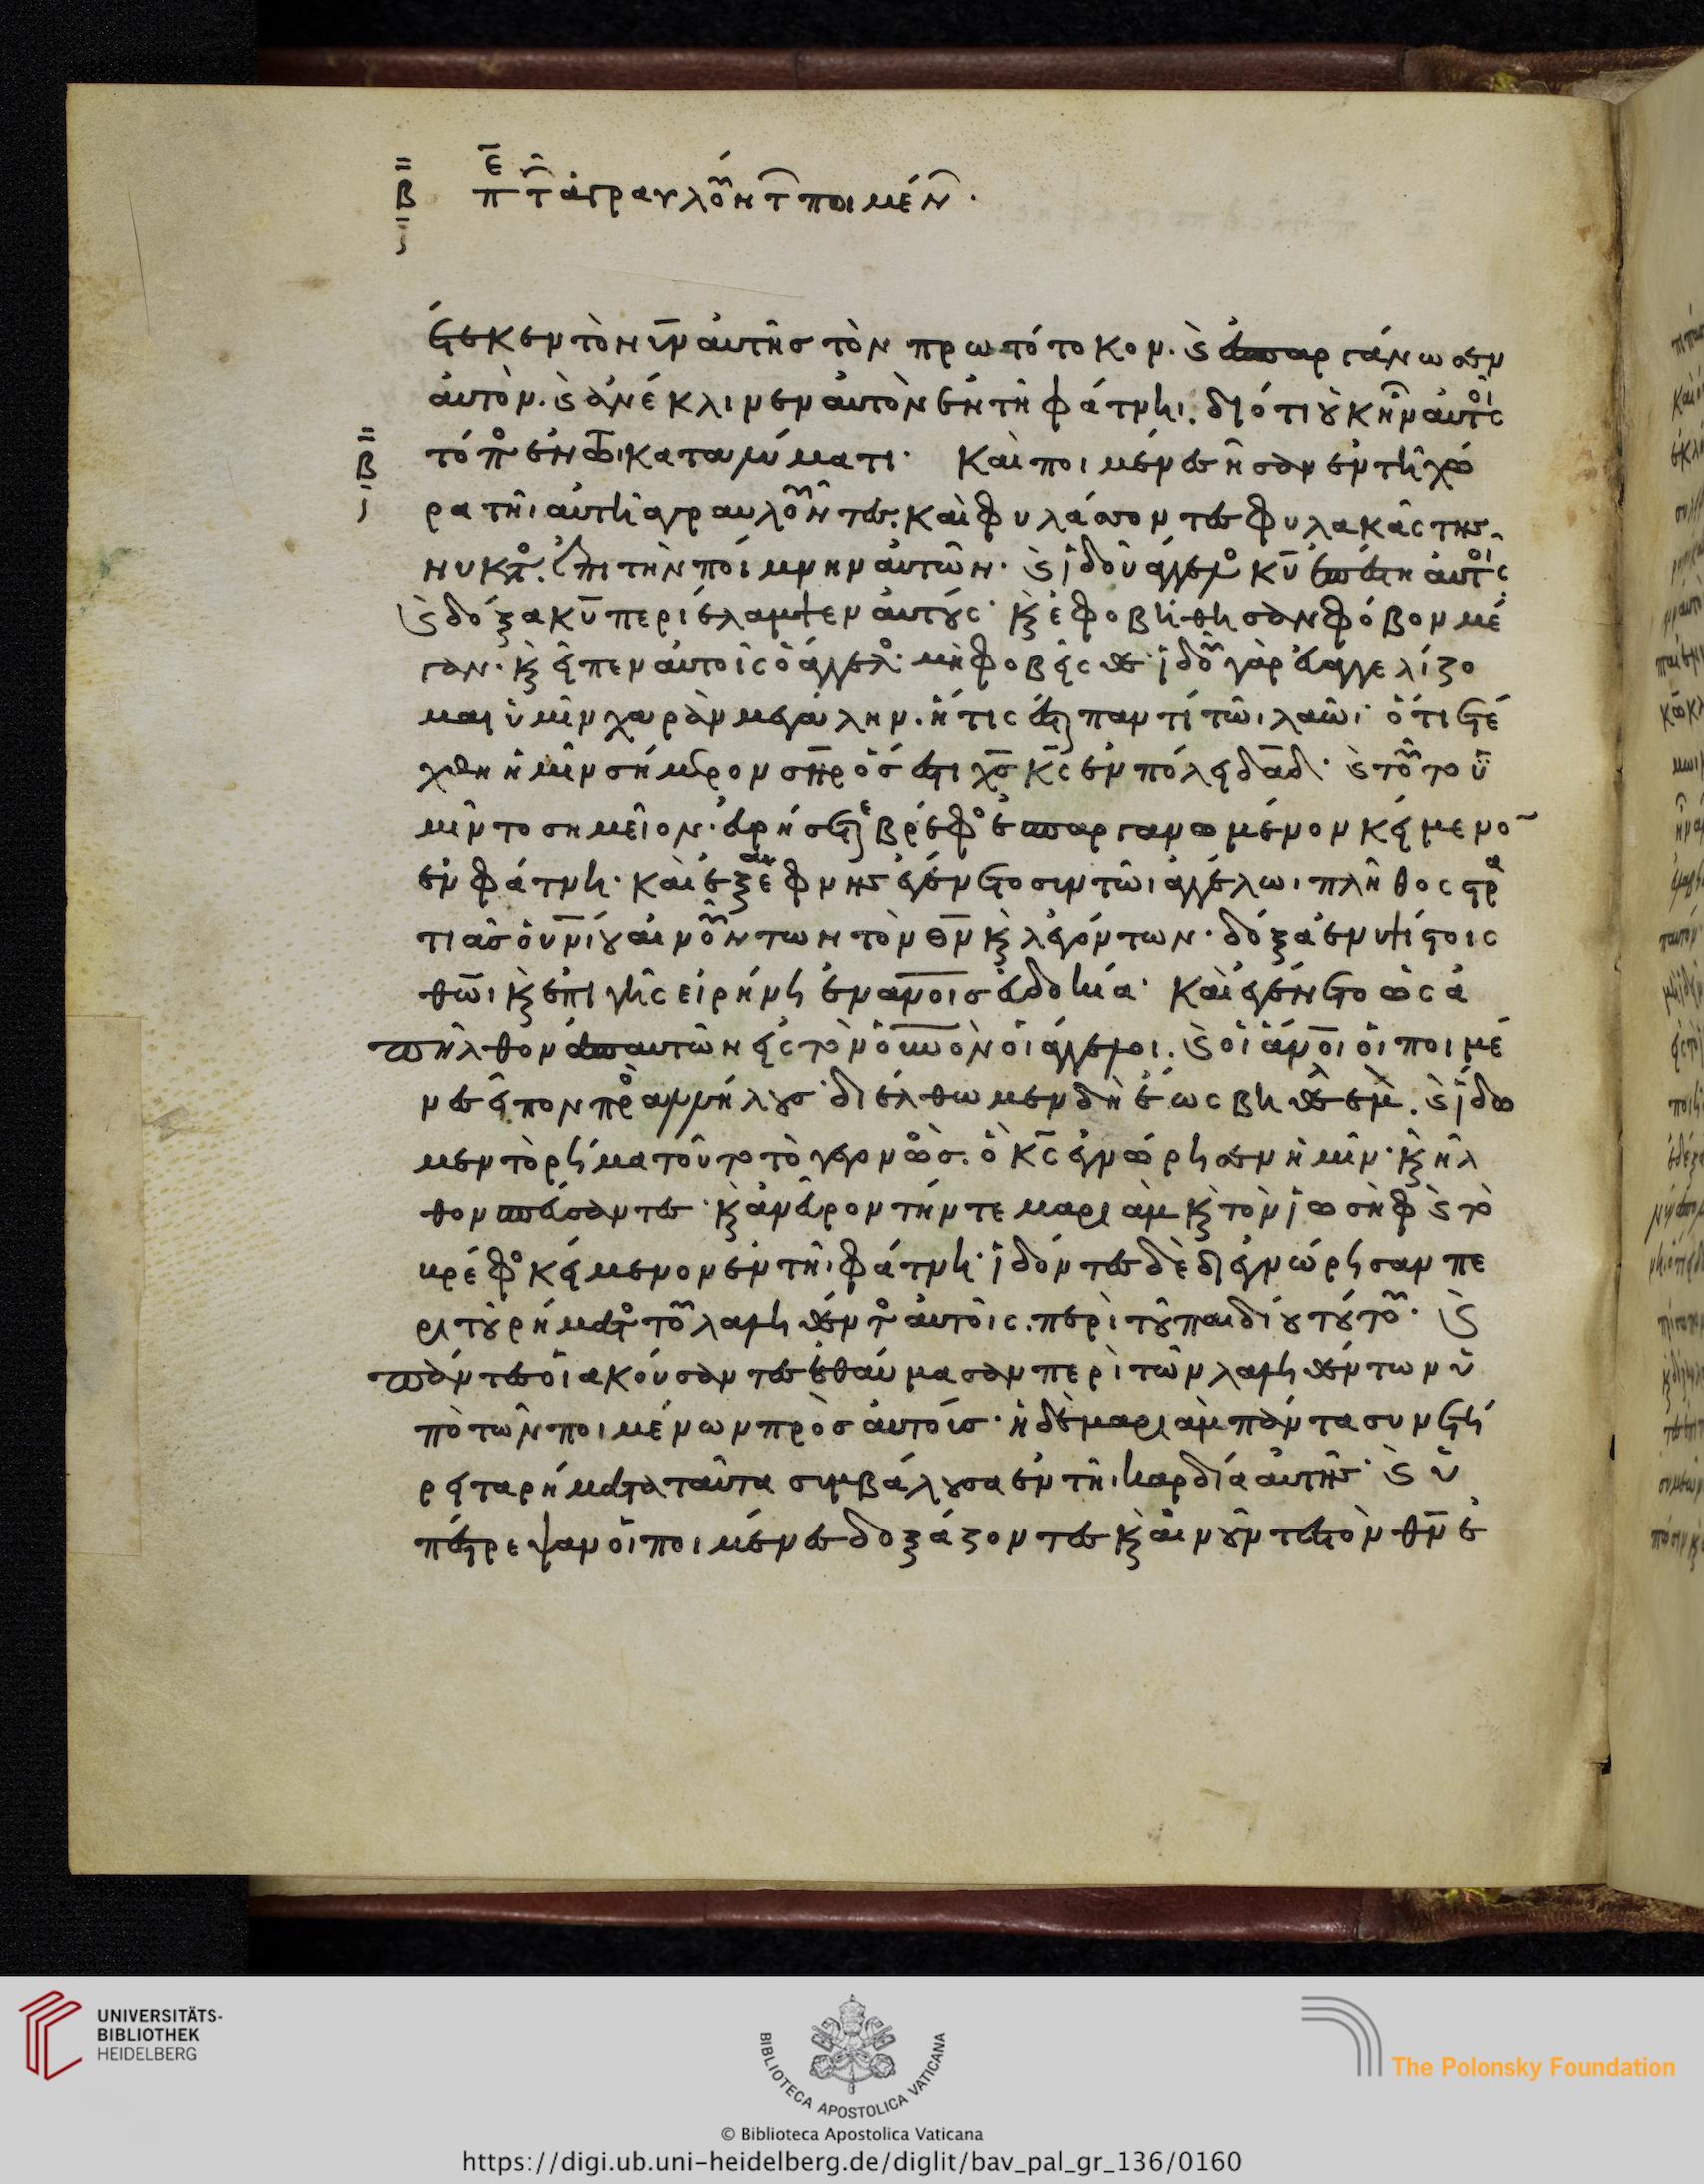 β̄ πε τ ἀγραυλούντ ποιμέν.
ἔτεκεν τὸν ῡν αὐτῆς τὸν πρωτότοκον. καὶ ἐσπαργάνωσεν
αὐτὸν. καὶ ἀνέκλινεν αὐτὸν ἐν τῆ φάτνηι. διότι οὐκ ἦν αὐτοῖς
τόπος ἐν τῶι καταλύματι· Καὶ ποιμένες ἦσαν ἐν τῆ χώ
β̄
ρα τῆι αὐτῆ ἀγραυλοῦντες. καὶ φυλάσσοντες φυλακὰς τῆς
νυκτὸς. ἐπὶ τὴν ποίμνην αὐτῶν. καὶ ἰδοὺ ἄγγελος κῡ ἐπέστη αὐτοῖς
καὶ δόξα κῡ περιέλαμψεν αὐτούς· καὶ ἐφοβήθησαν φόβον μέ
γαν. καὶ εἶπεν αὐτοῖς ὁ ἄγγελος· μὴ φοβεῖσθε· ἰδοῦ γὰρ εὐαγγελίζο
μαι ὑμῖν χαρὰν μεγάλην. ἥτις ἔσται παντὶ τῶι λαῶι· ὅτι ἐτέ
χθη ἡμῖν σήμερον σηρ ὅς ἐστι χς κς ἐν πόλει δαδ· καὶ τοῦτο ὑ
μῖν το σημεῖον. εὑρήσετε βρέφος ἐσπαργανωμένον κείμενον
ἐν φάτνη· καὶ ἐξέφνης ἐγένετο σὺν τῶι ἀγγέλωι πλῆθος στρα
τιᾶς οὐνίου αἰνοῦντων τὸν θν καὶ λεγόντων· δόξα ἐν ὑψίστοις
θωι καὶ ἐπὶ γῆς εἰρήνη ἐν ανοις εὐδοκία· Καὶ ἐγένετο ὡς ἀ
πῆλθον ἀπ αὐτῶν εἰς τὸν οὐνον οἱ ἄγγελοι. καὶ οἱ ἄνοι οἱ ποιμέ
νες εἶπον προς ἀλλήλους· διέλθωμεν δὴ ἕως βηθλεεμ. καὶ ἴδω
μεν τὸ ρῆμα τοῦτο τὸ γεγονὼς. ὃ κς ἐγνώρησεν ἡμῖν· καὶ ἦλ
θον σπεύσαντες· καὶ ἀνεῦρον τήν τε μαριὰμ καὶ τὸν ἰωσὴφ καὶ τὸ
βρέφος κείμενον ἐν τῆι φάτνη· ἰδόντες δὲ διεγνώρησαν πε
ρὶ τοῦ ρήματος τοῦ λαληθέντος αὐτοῖς. περὶ τοῦ παιδίου τούτου· καὶ
πάντες οἱ ἀκούσαντες ἐθαύμασαν περὶ τῶν λαληθέντων ὑ
πὸ τῶν ποιμένων πρὸς αὐτούς· ἡ δὲ μαριὰμ πάντα συνετή
ρει τα ρήματα ταῦτα συμβάλουσα ἐν τῆι καρδία αὐτῆς· καὶ ὑ
πέστρεψαν οἱ ποιμένες δοξάζοντες καὶ αἰνοῦντες τὸν θν ἐ
UNIVERSITÄTS-
BIBLIOTHEK
HEIDELBERG
BIBLIOTECA APOSTOLICA VATICANA
The Polonsky Foundation
© Biblioteca Apostolica Vaticana
https://digi.ub.uni-heidelberg.de/diglit/bav_pal_gr_136/0160